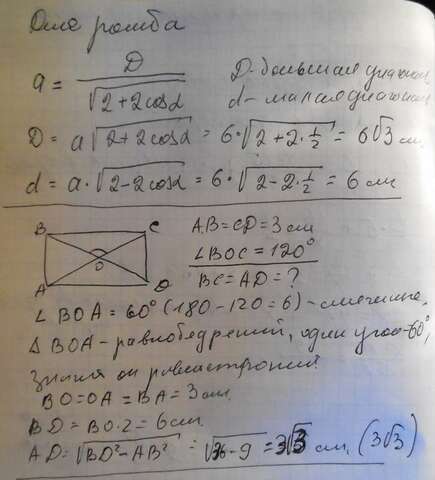 Для ромба
a = D / √(2+2cosα)
D - большая диагональ
d - малая диагональ
D = a√(2+2cosα) = 6·√(2+2·1/2) = 6√3 см
d = a·√(2-2cosα) = 6·√(2-2·1/2) = 6 см
B C
O
A D
AB=CD=3 см
∠BOC=120°
BC=AD=?
∠BOA=60° (180-120=6) - смежные,
Δ BOA - равнобедренный, один угол-60°,
значит он равносторонний
BO=OA=BA=3см.
BD=BO·2=6см.
AD=√(BD²-AB²) = √(36-9) = 3√3 см. (3√3)